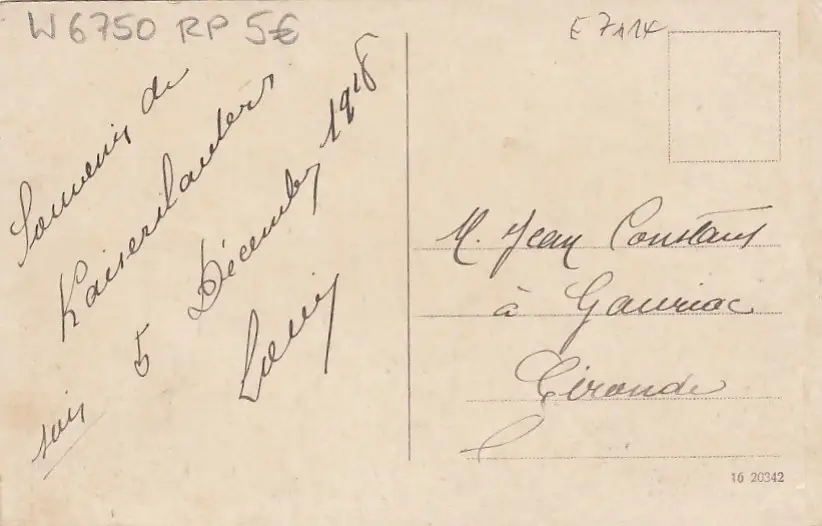 W 6750 RP 5€
E 7114
Souvenir de
Kaiserslautern
5 Décembre 1918
Louis
M. Jean Constans
à Gauriac
Gironde
16 20342